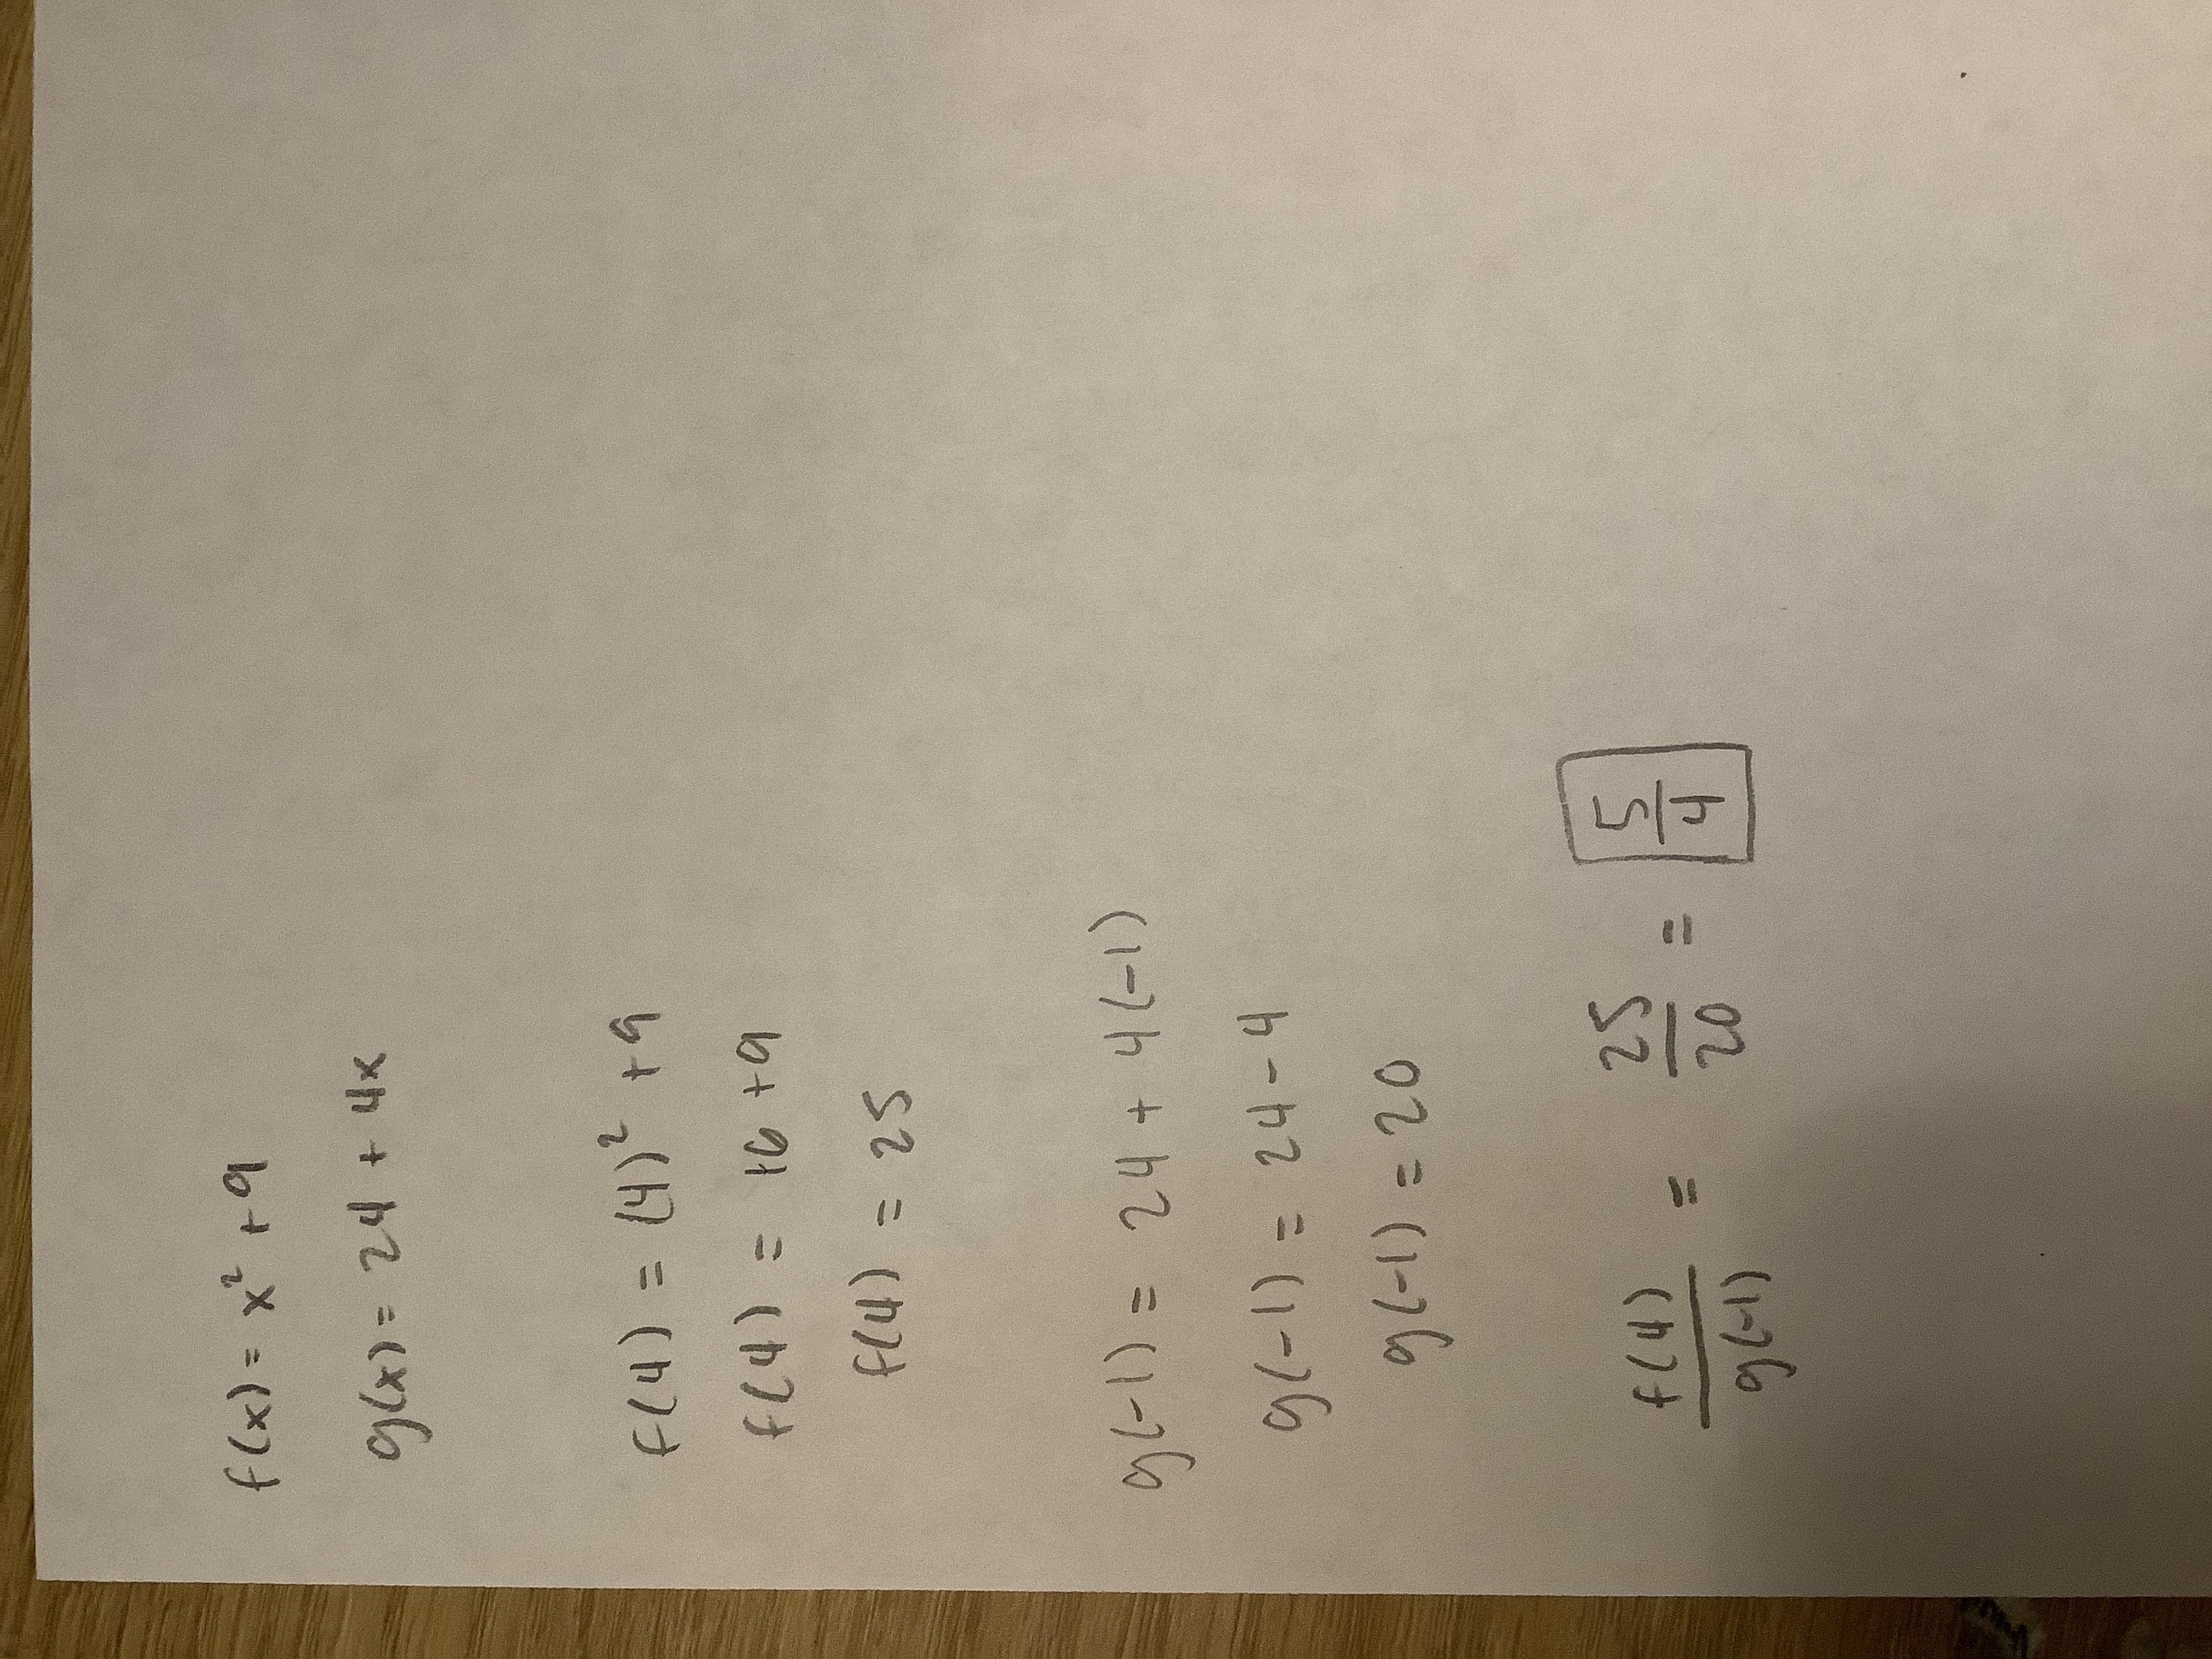 f(x) = x² + 9
g(x) = 24 + 4x
f(4) = (4)² + 9
f(4) = 16 + 9
f(4) = 25
g(-1) = 24 + 4(-1)
g(-1) = 24 - 4
g(-1) = 20
f(4)/g(-1) = 25/20 = 5/4